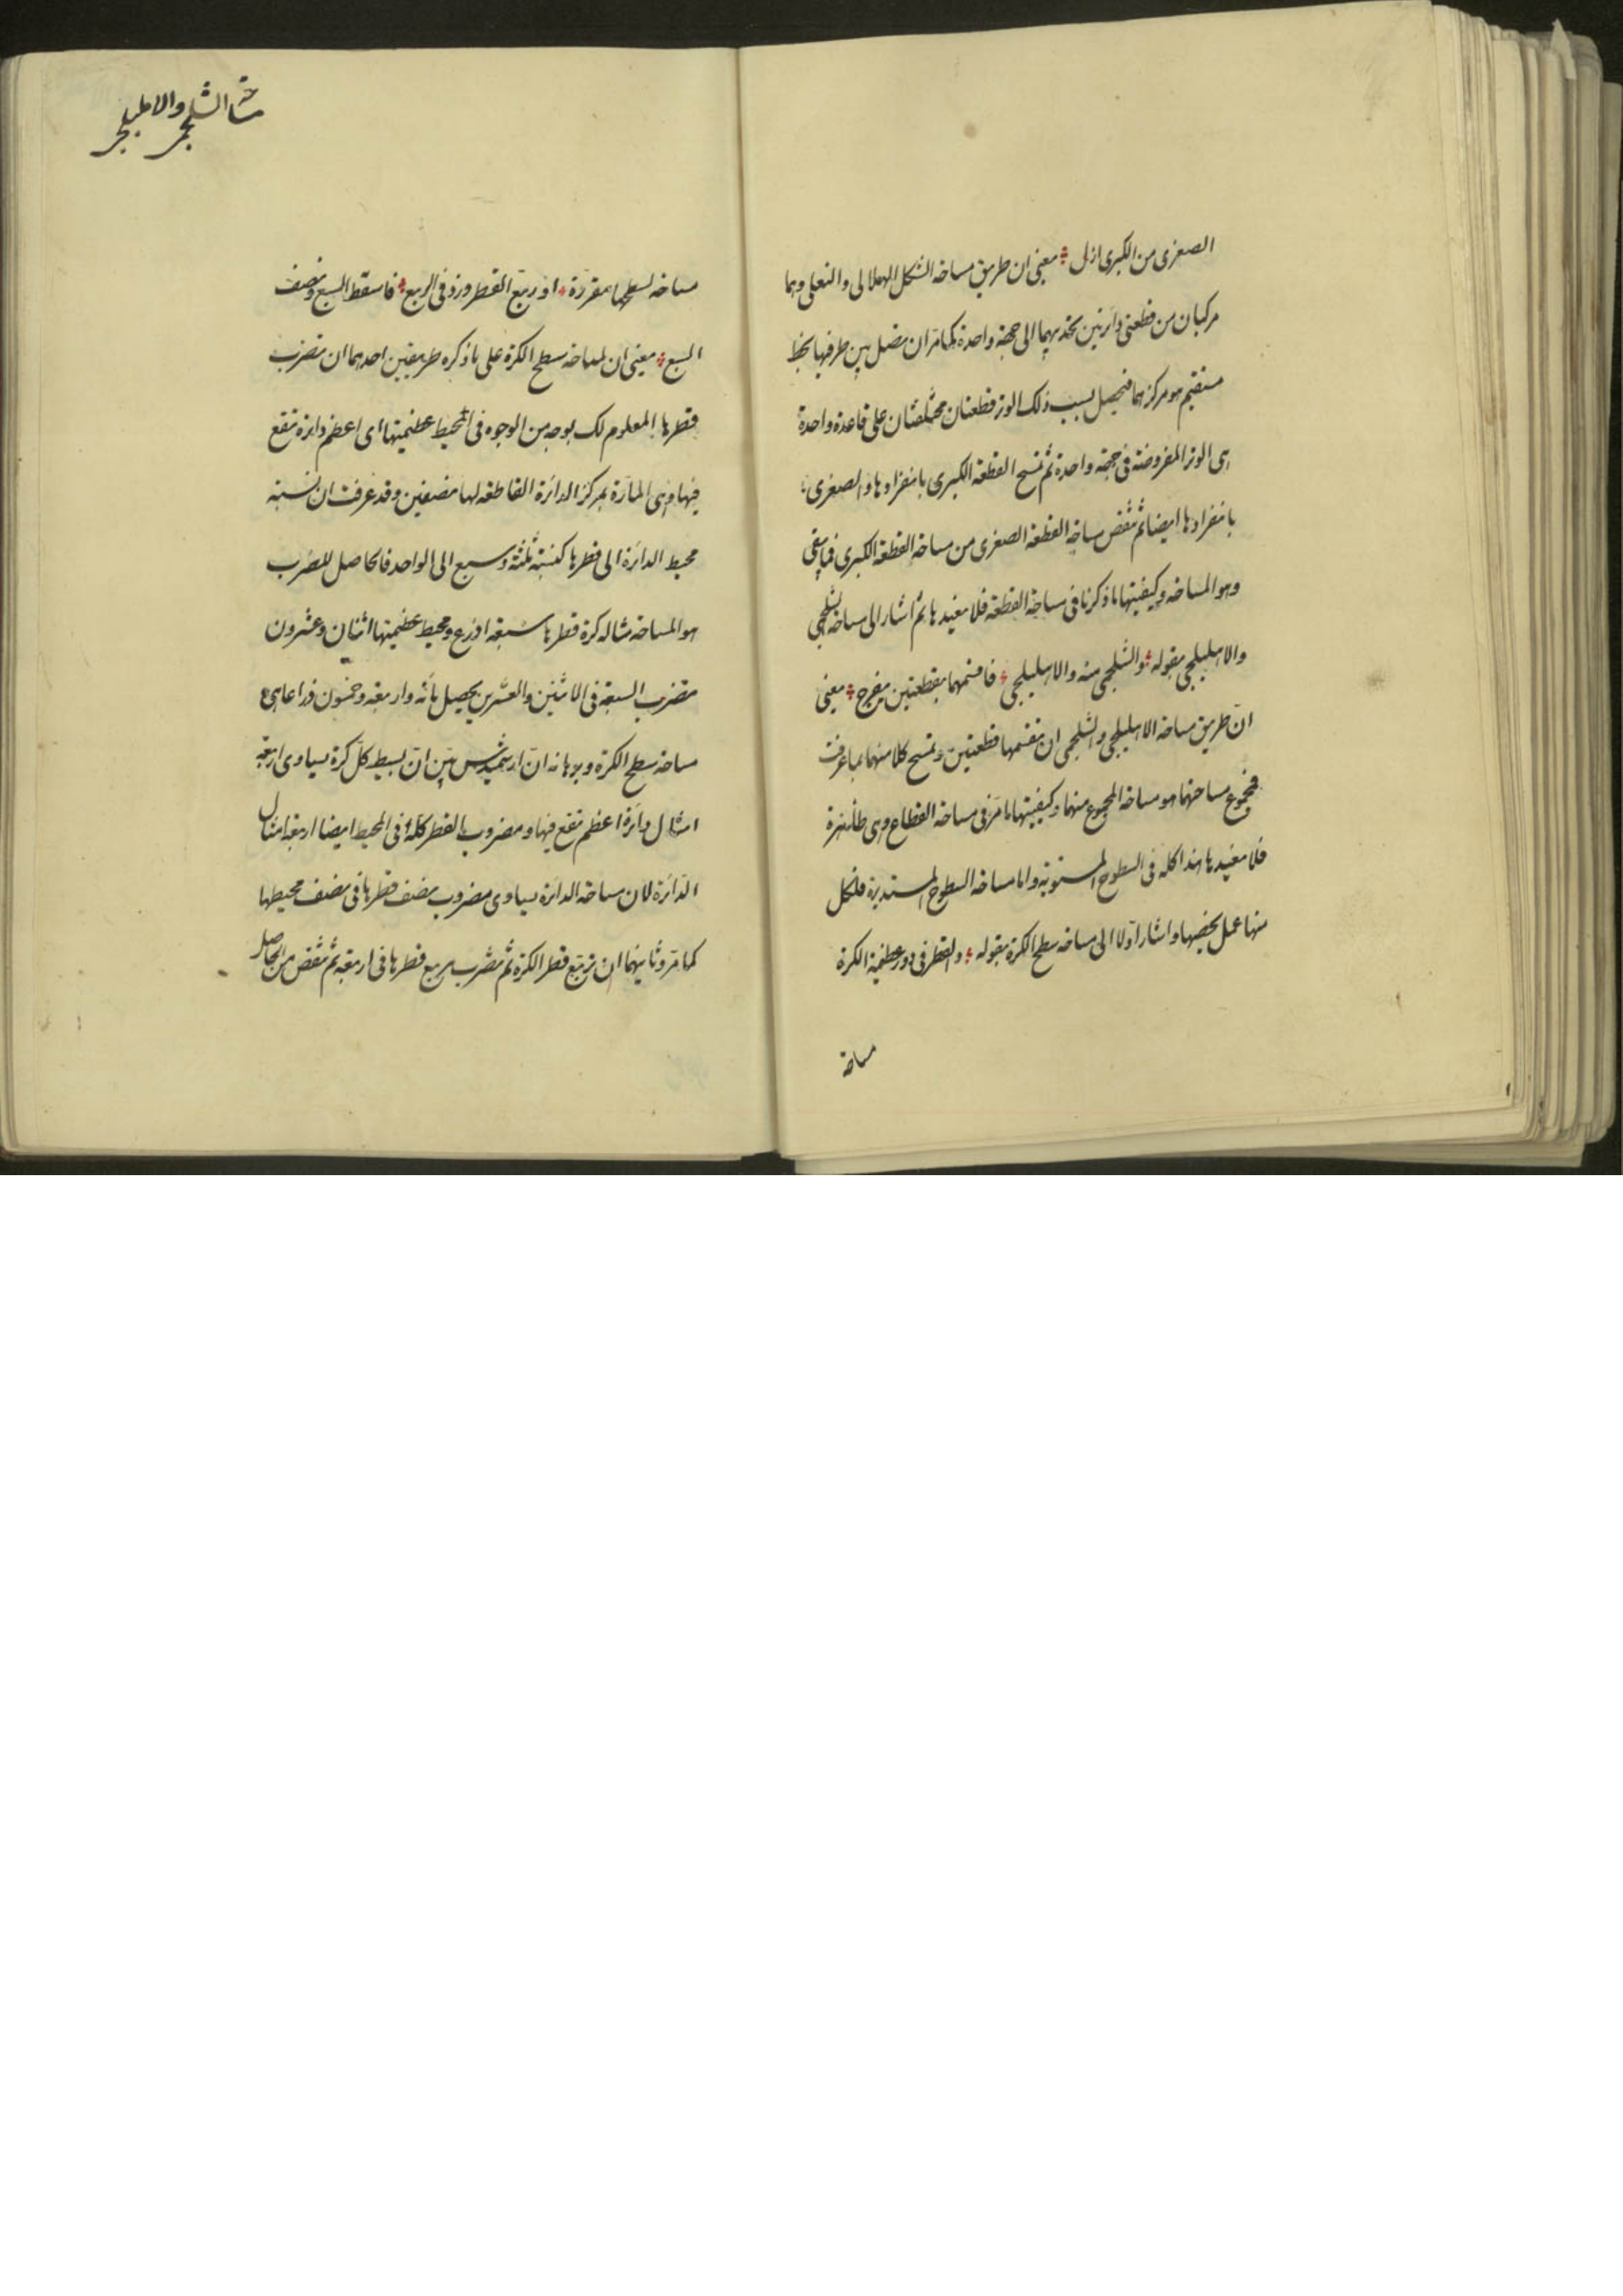 الصغرى من الكبرى ازل معنى ان طريق مساحة الشكل الهلالى والنعلى وهما
مركبان من قطعتى دائرتين تحديبهما الى جهة واحدة كما مر ان تصل بين طرفيها بخط
مستقيم هو مركزهما فيحصل بسبب ذلك الوتر قطعتان مختلفتان على قاعدة واحدة
هى الوتر المفروضة فى جهة واحدة ثم تمسح القطعة الكبرى بانفرادها والصغرى
بانفرادها ايضا ثم تنقص مساحة القطعة الصغرى من مساحة القطعة الكبرى فما بقى
وهو المساحة وكيفيتها ما ذكرنا فى مساحة القطعة فلا نعيدها ثم اشار الى مساحة الشلجمى
والاهليلجى بقوله والشلجمى منه والاهليلجى فاقسمهما بقطعتين يفرج يعنى
ان طريق مساحة الاهليلجى والشلجمى ان تقسمهما قطعتين وتمسح كلا منهما بما عرفت
فمجموع مساحتهما هو مساحة المجموع منهما وكيفيتها ما مر فى مساحة القطاع وهى ظاهرة
فلا نعيدها هذا كله فى السطوح المستوية واما مساحة السطوح المستديرة فلكل
منها عمل يخصها واشار اولا الى مساحة سطح الكرة بقوله والقطر فى دور عظيمة الكرة
مساحة
مساحة الشلجمى والاهليلجى
مساحة لسطحها مقررة او ربع القطر وزد فى الربع فاسقط السبع ونصف
السبع يعنى ان لمساحة سطح الكرة على ما ذكره طريقين احدهما ان تضرب
قطرها المعلوم لك بوجه من الوجوه فى المحيط عظيمتها اى اعظم دائرة تقع
فيها وهى المارة بمركز الدائرة القاطعة لها نصفين وقد عرفت ان نسبة
محيط الدائرة الى قطرها كنسبة ثلثة وسبع الى الواحد فالحاصل للضرب
هو المساحة مثاله كرة قطرها سبعة اذرع ومحيط عظيمتها اثنان وعشرون
تضرب السبعة فى الاثنين والعشرين يحصل مائة واربعة وخمسون ذراعا هى
مساحة سطح الكرة وبرهانه ان ارشميدس بين ان بسيط كل كرة يساوى اربعة
امثال دائرة اعظم تقع فيها ومضروب القطر كله فى المحيط ايضا اربعة امثال
الدائرة لان مساحة الدائرة يساوى مضروب نصف قطرها فى نصف محيطها
كما مر وثانيهما ان تربع قطر الكرة ثم تضرب مربع قطرها فى اربعة ثم تنقص من الحاصل